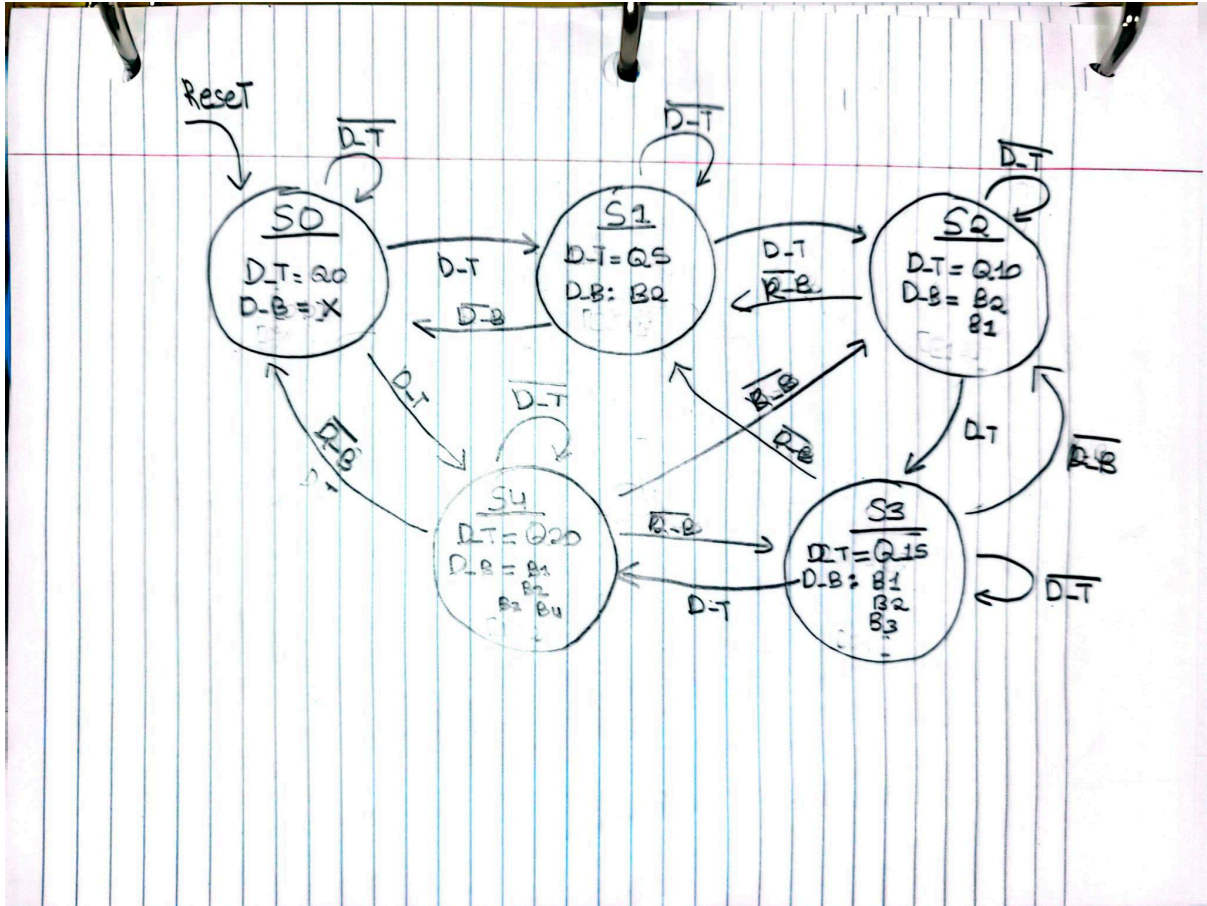 Reset
D_T
D_T
D_T
S0
D_T = Q0
D_B = X
D_T
D_B
S1
D_T = Q5
D_B: B2
D_T
D_B
S2
D_T = Q10
D_B = B2
B1
D_T
D_T
D_B
D_B
D_B
D_T
D_B
S4
D_T = Q20
D_B = B1
B2
B3 B4
D_B
D_T
S3
D_T = Q15
D_B: B1
B2
B3
D_T